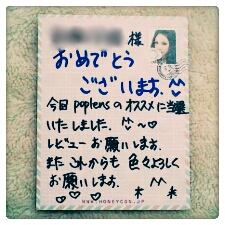 様
おめでとう
ございます。^^
今回 poplensのオススメに当選
いたしました。
レビューお願いします。
またこれからも色々よろしく
お願いします。
WWW.HONEYCON.JP